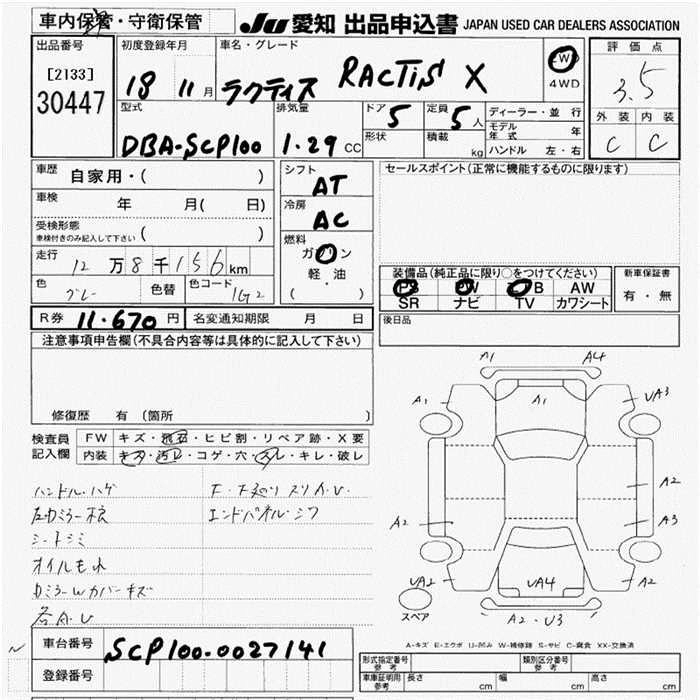 車内保管・守衛保管
JU 愛知 出品申込書 JAPAN USED CAR DEALERS ASSOCIATION
出品番号
[2133]
30447
初度登録年月
18 11 月
車名・グレード
ラクティス RACTIS X
2WD
4WD
評価点
3.5
外装 内装
C C
型式
DBA-SCP100
排気量
1.29 CC
ドア 5
形状
定員 5 人
積載 kg
ディーラー・並行
モデル年式 年
ハンドル 左・右
車歴
自家用・( )
車検
年 月( 日)
受検形態
車検付きのみ記入して下さい ( )
走行
12 万 8 千 156 km
色
グレー
色替
色コード
1G2
シフト
AT
冷房
AC
燃料
ガソリン
軽・油
( )
セールスポイント(正常に機能するものに限ります)
装備品(純正品に限り○をつけてください)
PS PW エアB AW
SR ナビ TV カワシート
新車保証書
有・無
R券 11.670 円 名変通知期限 月 日
後日品
注意事項申告欄(不具合内容等は具体的に記入して下さい)
修復歴 有 (箇所 )
検査員記入欄
FW キズ・飛石・ヒビ割・リペア跡・X要
内装 キズ・汚レ・コゲ・穴・スレ・キレ・破レ
ハンドル・ハゲ
シートシミ
オイルもれ
エンドパネル・シワ
A1 A4
A1 A1 UA3
A2
A2 A3
UA2 UA4 A2
A2・U3
スペア
A-キズ E-エクボ U-凹み W-補修跡 S-サビ C-腐食 XX-交換済
車台番号 SCP100-0027141
登録番号
形式指定番号 参考
類別区分番号 参考
車庫証明用 参考 長さ cm 幅 cm 高さ cm